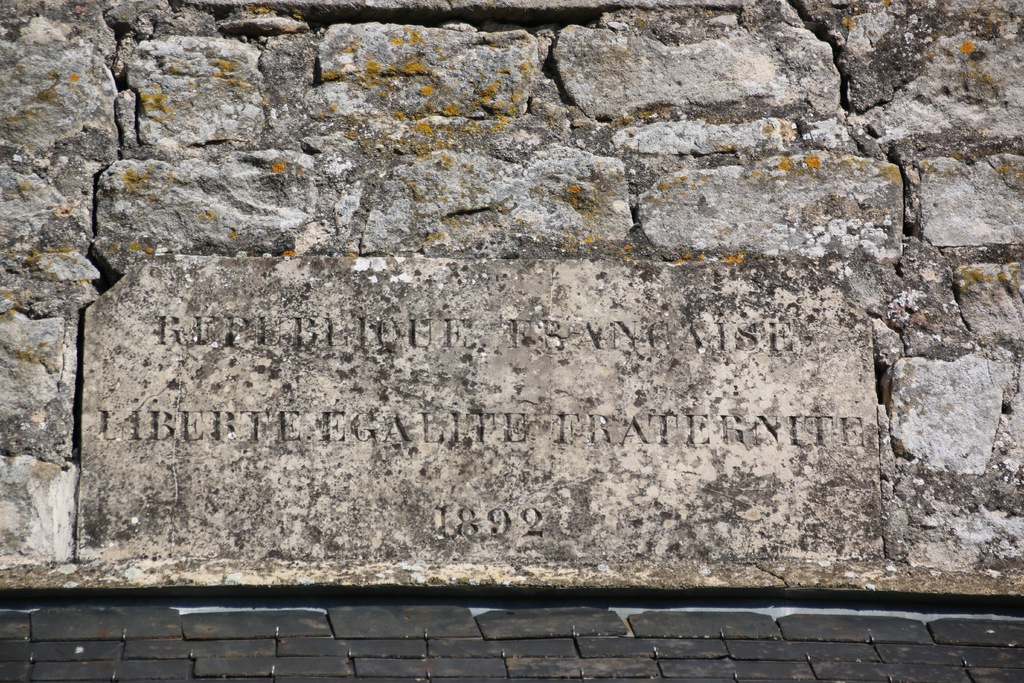 REPUBLIQUE FRANCAISE
LIBERTE.EGALITE FRATERNITE
1892